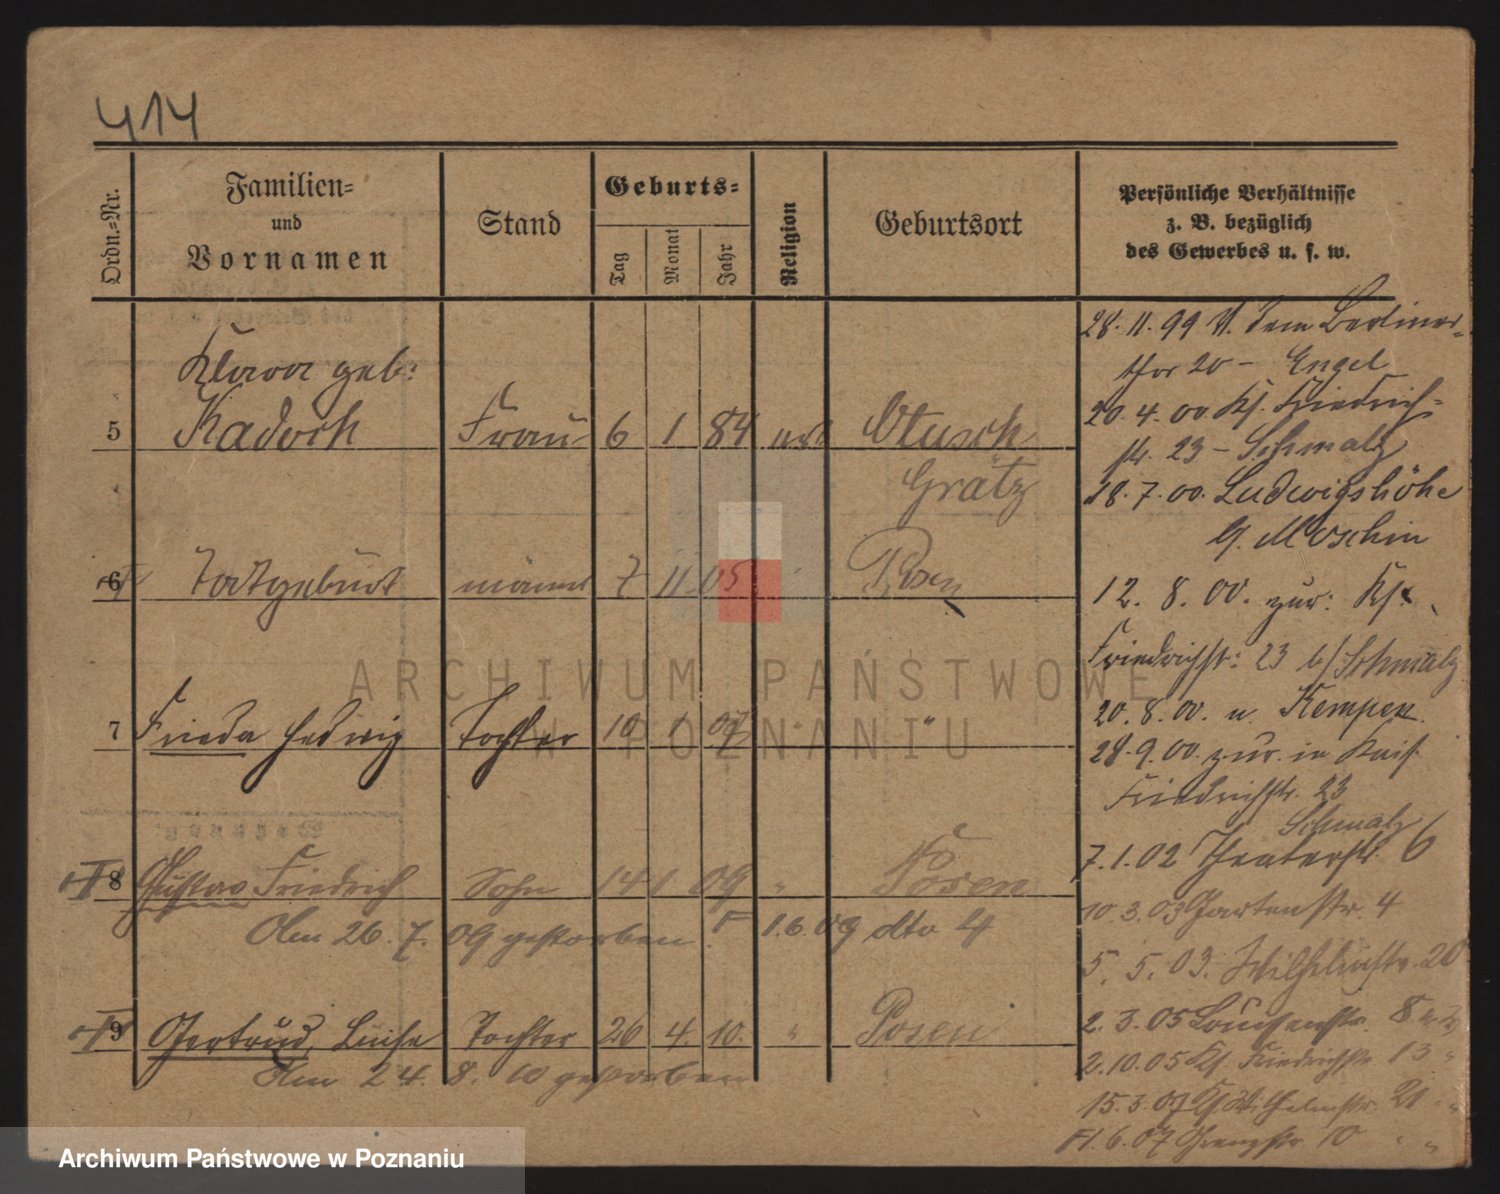 414
Ordn.=Nr.
Familien=
und
Vornamen
Stand
Geburts=
Tag
Monat
Jahr
Religion
Geburtsort
Persönliche Verhältnisse
z. B. bezüglich
des Gewerbes u. s. w.
Klara geb:
5 Kadoch Frau 6 1 84 Otusch
Grätz
6 Todtgeburt männl 7 11 05 Posen
7 Frieda Hedwig Tochter 10 1 07 " "
8 Gustav Friedrich Sohn 14 1 09 " Posen
Am 26. 7. 09 gestorben. 1.6.09 dto 4
9 Gertrud, Luise Tochter 26 4. 10. " Posen
Am 24. 8. 10 gestorben
28. 11. 99 V. dem Berliner=
thor 20 – Engel
20. 4. 00 Ks. Friedrich=
str. 23 – Schmalz
18. 7. 00. Ludwigshöhe
b. Moschin
12. 8. 00. zur: Ks.
Friedrichstr: 23 b/ Schmalz
20. 8. 00. n. Kempen
28. 9. 00. zur. in Kais.
Friedrichstr. 23
Schmalz
7. 1. 02 Theaterstr. 6
10. 3. 03 Gartenstr. 4
5. 5. 03. Wilhelmstr. 20
2. 3. 05 Louisenstr. 8
2. 10. 05 Ks. Friedrichstr 13 "
15. 3. 07 Wilhelmstr. 21 " "
1. 6. 07 10 " "
ARCHIWUM PAŃSTWOWE
W POZNANIU
Archiwum Państwowe w Poznaniu